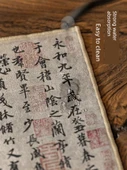 Strong water
absorption
Easy to clean
永和九年歲在癸丑暮春
于會稽山陰之蘭亭
也羣賢畢至少長咸
領茂林脩竹又